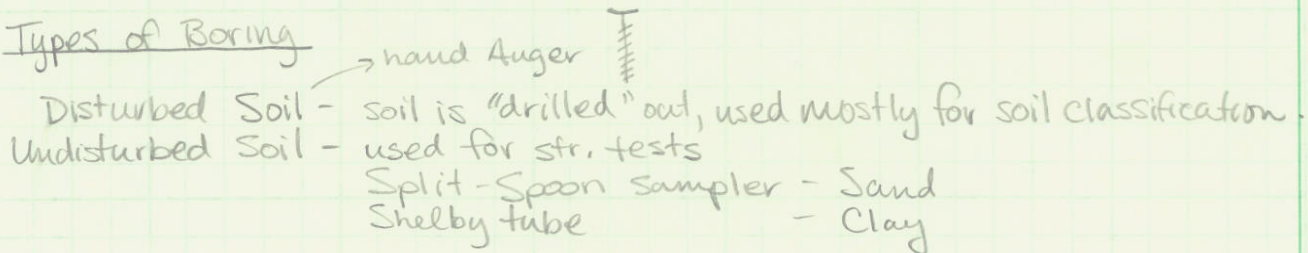 Types of Boring
hand Auger
Disturbed Soil - soil is "drilled" out, used mostly for soil classification.
Undisturbed Soil - used for str. tests
Split-Spoon Sampler - Sand
Shelby tube - Clay